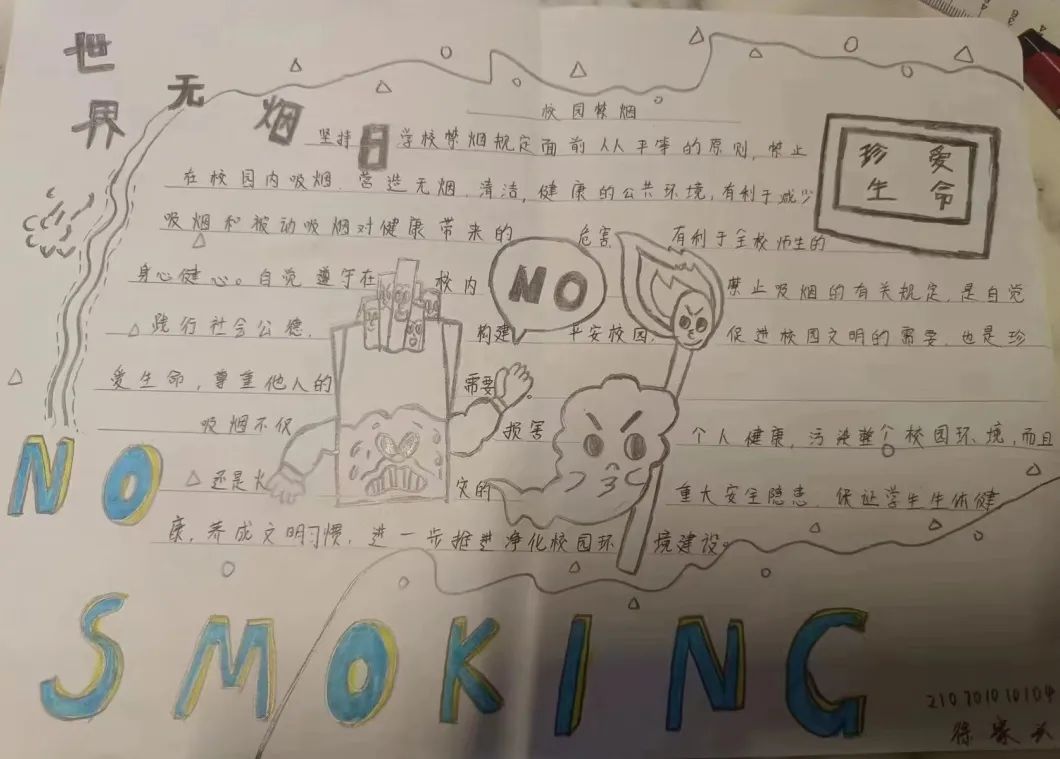 世界无烟日
校园禁烟
坚持学校禁烟规定面前人人平等的原则，禁止
在校园内吸烟，营造无烟，清洁，健康的公共环境，有利于减少
吸烟和被动吸烟对健康带来的危害 有利于全校师生的
身心健心。自觉遵守在校内禁止吸烟的有关规定，是自觉
践行社会公德，构建平安校园，促进校园文明的需要，也是珍
爱生命，尊重他人的需要。
吸烟不仅损害个人健康，污染整个校园环境，而且
还是火灾的重大安全隐患，保证学生生体健
康，养成文明习惯，进一步推进净化校园环境建设。
珍爱
生命
NO
NO
SMOKING
210701010104
徐家